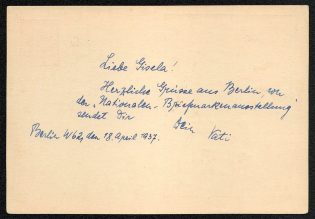 Liebe Gisela!
Herzliche Grüsse aus Berlin, von
der „Nationalen-Briefmarkenausstellung"
sendet Dir
Dein Vati
Berlin W62, den 18. April 1937.